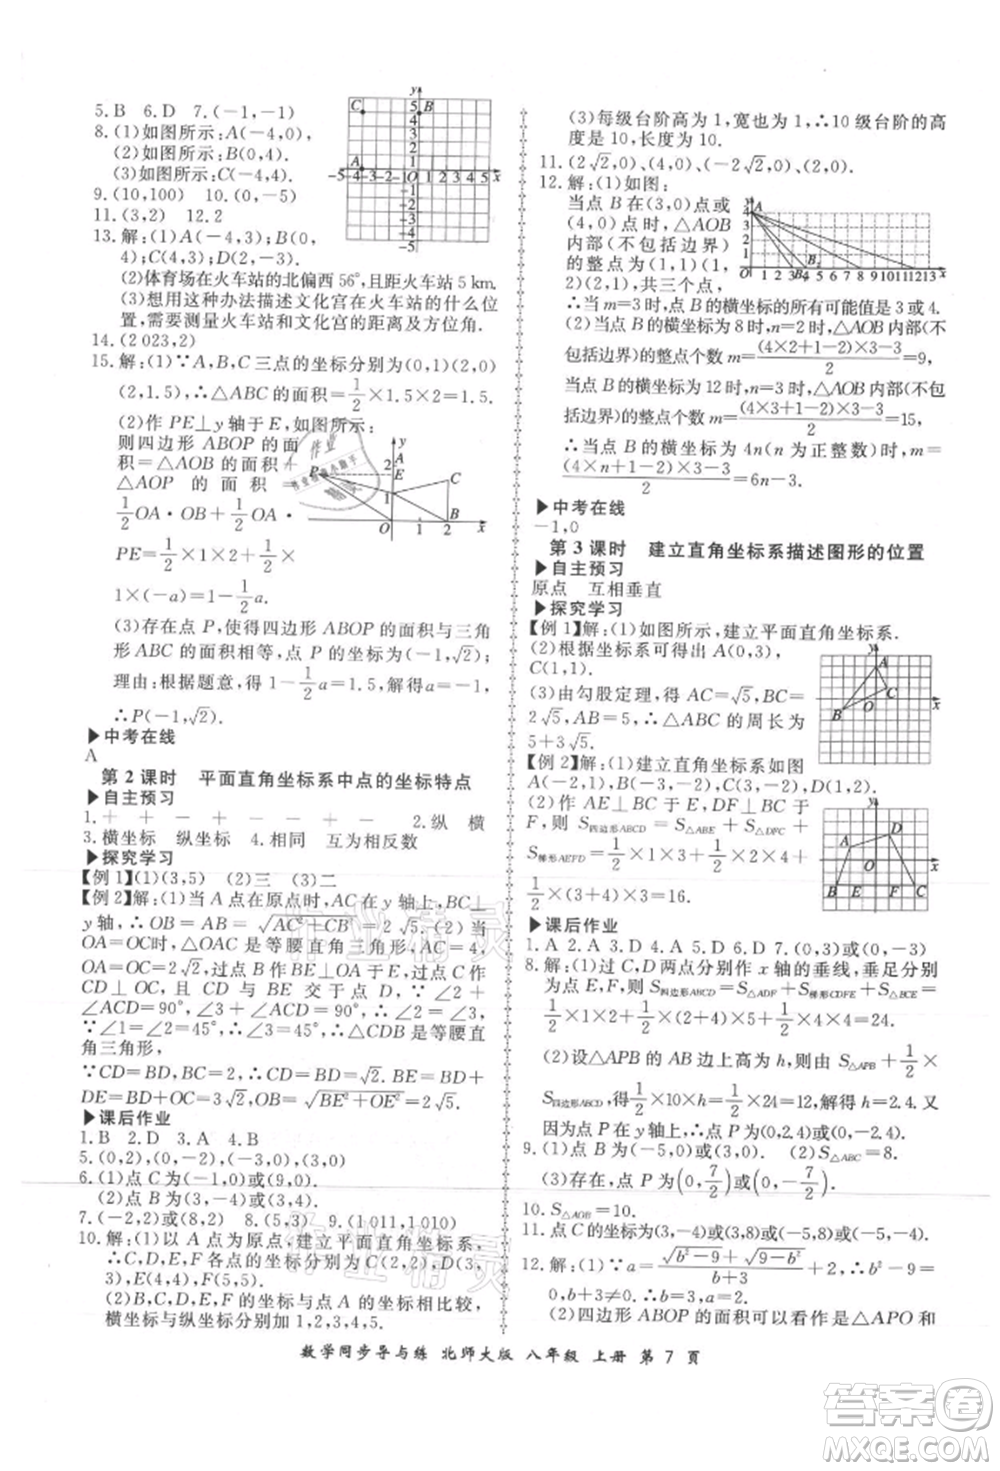 5. B  6. D  7. (-1,-1)
8. (1)如图所示:A(-4,0);
(2)如图所示:B(0,4);
(3)如图所示:C(-4,4).
9. (10,100)  10. (0,-5)
11. (3,2)  12. 2
13. 解:(1)A(-4,3);B(0,
4);C(4,3);D(2,-1).
(2)体育场在火车站的北偏西56°,且距火车站5 km.
(3)想用这种办法描述文化宫在火车站的什么位
置,需要测量火车站和文化宫的距离及方位角.
14. (2 023,2)
15. 解:(1)∵A,B,C三点的坐标分别为(0,1)(2,0)
(2,1.5),∴△ABC的面积=1/2×1.5×2=1.5.
(2)作PE⊥y轴于E,如图所示:
则四边形ABOP的面
积=△AOB的面积+
△AOP的面积=
1/2 OA·OB+1/2 OA·
PE=1/2×1×2+1/2×
1×(-a)=1-1/2 a.
(3)存在点P,使得四边形ABOP的面积与三角
形ABC的面积相等,点P的坐标为(-1,√2).
理由:根据题意,得1-1/2 a=1.5,解得a=-1,
∴P(-1,√2).
▶中考在线
A
第2课时 平面直角坐标系中点的坐标特点
▶自主预习
1. + + - + - - + -  2. 纵 横
3. 横坐标 纵坐标  4. 相同 互为相反数
▶探究学习
【例1】(1)(3,5)  (2)三  (3)二
【例2】解:(1)当A点在原点时,AC在
y轴,∴OB=AB=√(AC²+CB²)=2√5. (2)当
OA=OC时,△OAC是等腰直角三角形,AC=4,
∴OA=OC=2√2,过点B作BE⊥OA于E,过点C作
CD⊥OC,CD与BE交于点D,∵∠2+
∠ACD=90°,∠3+∠ACD=90°,∴∠2=∠3,
∵∠1=∠2=45°,∴∠3=45°,∴△CDB是等腰直
角三角形,
∵CD=BD,BC=2,∴CD=BD=√2.∴BE=BD+
DE=BD+OC=3√2,∴OB=√(BE²+OE²)=2√5.
▶课后作业
1. B  2. D  3. A  4. B
5. (0,2),(0,-2),(-3,0),(3,0)
6. (1)点C为(-1,0)或(9,0)
(2)点C为(-1,0)或(9,0)
7. (-2,2)或(8,2)  8. (5,3)  9. (1 011,1 010)
10. 解:(1)以A点为原点,建立平面直角坐标系,
∴C,D,E,F各点的坐标分别为C(2,2),D(3,
3),E(4,4),F(5,5);
(2)B,C,D,E,F的坐标与点A的坐标相比较,
横坐标与纵坐标分别加1,2,3,4,5.
(3)每级台阶高为1,宽也为1,∴10级台阶的高
度是10,长度为10.
11. (2√2,0),(4,0),(-2√2,0),(2,0).
12. 解:(1)如图:
当点B在(3,0)点或
(4,0)点时,△AOB
内部(不包括边界)
的整点为(1,1),
(1,2),共三个点,
∴当m=3时,点B的横坐标的所有可能值是3或4.
(2)当点B的横坐标为8时,n=2时,△AOB内部(不
包括边界)的整点个数m=(4×2+1-2)×3-3/2=9,
当点B的横坐标为12时,n=3时,△AOB内部(不
包括边界)的整点个数m=(4×3+1-2)×3-3/2=15,
∴当点B的横坐标为4n(n为正整数)时,m=
(4×n+1-2)×3-3/2=6n-3.
▶中考在线
-1,0
第3课时 建立直角坐标系描述图形的位置
▶自主预习
原点 互相垂直
▶探究学习
【例1】解:(1)如图所示,建立平面直角坐标系.
(2)根据坐标系可得出A(0,3),
C(1,1).
(3)由勾股定理,得AC=√5,BC=
2√5,AB=5,∴△ABC的周长为
5+3√5.
【例2】解:(1)建立坐标系如图
A(-2,1),B(-3,-2),C(3,-2),D(1,2)
(2)作AE⊥BC于E,DF⊥BC于F,
则S四边形ABCD=S△ABE+S△DFC+
S梯形AEFD=1/2×1×3+1/2×2×4
+1/2×(3+4)×3=16.
▶课后作业
1. A  2. A  3. A  4. A  5. D  6. D  7. (0,3)或(0,-3)
8. 解:(1)过C,D两点分别作x轴的垂线,垂足分别
为点E,F,则S四边形ABCD=S△ADF+S梯形CDFE+S△BCE=
1/2×1×4+1/2×(4+2)×6+1/2×2×4=24.
(2)设△APB的AB边上高为h,则由S△APB=1/2×
S四边形ABCD,得1/2×10×h=1/2×24,解得h=2.4,又
因为点P在y轴上,∴点P(0,2.4)或(0,-2.4).
9. (1)点B为(5,0)或(-3,0)  (2)S△ABC=8.
(3)存在,点P为(0,7/2)或(0,-7/2).
10. S△AOB=10.
11. 点C的坐标为(3,-4)或(3,8)或(-5,-4)或(-5,8).
12. 解:(1)∵a=√(b²-9)+√(9-b²)/b+3,∴b²-9=
0,b+3≠0.∴b=3,∴a=0.
(2)四边形ABOP的面积可以看作是△APO和
数学同步导与练 北师大版 八年级 上册 第7页
作业精灵
答案圈
MXQE.COM